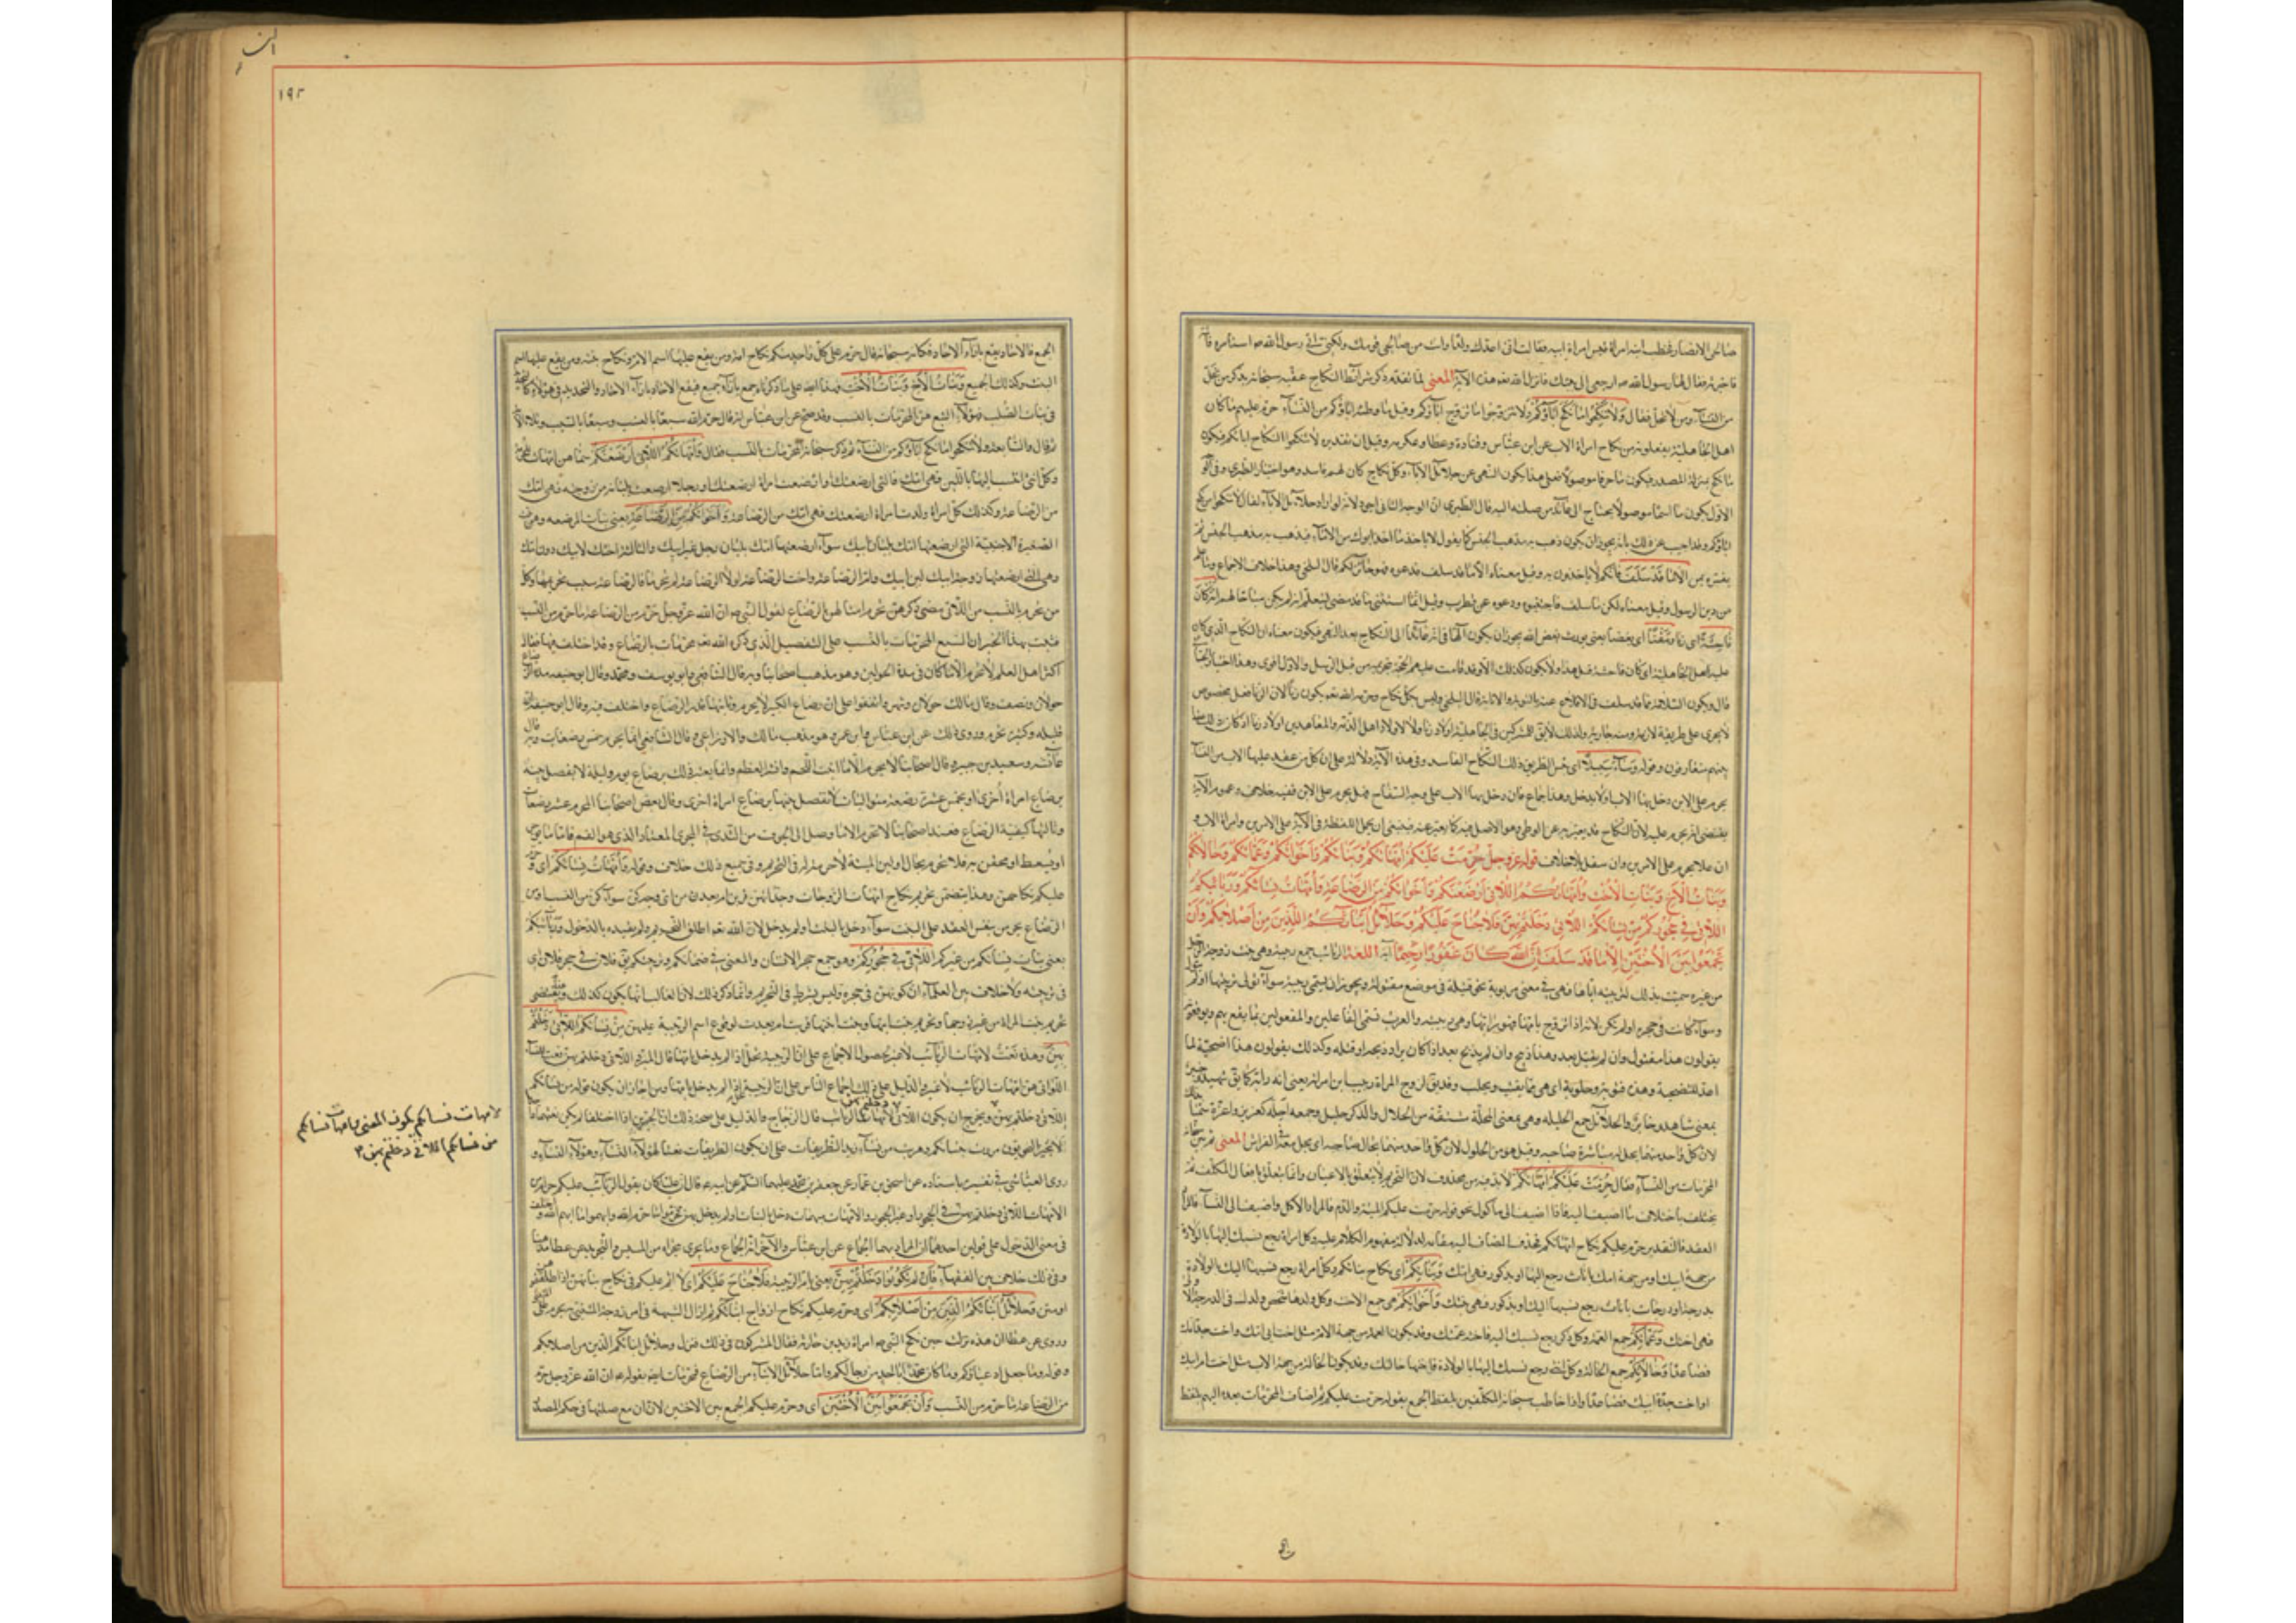 صالحى الانصار فخطب ابنه امرأة قيس امرأة ابيه فقالت انى اعدك ولدا وانت من صالحى قومك ولكنى اتى رسول الله ص استامره فاتته
فاخبرته فقال لها رسول الله ص ارجعى الى بيتك فانزل الله تعه هذه الآية المعنى لما تقدم ذكر شرائط النكاح عقبه سبحانه بذكر من تحل
من النسآء ومن لا تحل فقال وَلا تَنْكِحُوا ما نَكَحَ اباؤُكُمْ اى لا تتزوجوا ما تزوج اباؤكم وقيل ما وطئ اباؤكم من النسآء حرم عليهم ما كان
اهل الجاهلية يفعلونه من نكاح امرأة الاب عن ابن عباس وقتادة وعطا وعكرمه وقيل ان تقديره لا تنكحوا النكاح ابائكم فيكون
ما نكح بمنزلة المصدر فيكون ما حرفا موصولا فعلى هذا يكون النهى عن حلائل الآباء وكل نكاح كان لهم فاسد وهو اختيار الطبرى وفى الوجه
الاول يكون ما اسما موصولا يحتاج الى عائد من صلته اليه قال الطبرى ان الوجه الثانى اجود لانه لو اراد حلائل الآباء لقال لا تنكحوا من نكح
اباؤكم وقد اجيب عن ذلك بانه يجوز ان يكون ذهب به مذهب الجنس كما يقول لا ياخذ ما اخذ ابوك من الامآء فيذهب به مذهب الجنس ثم
يفسره بمن الا ما قَدْ سَلَفَ فانكم لا تؤاخذون به وقيل معناه الا ما قد سلف فدعوه فهو جائز لكم قال البلخى وهذا خلاف الاجماع وما علم
من دين الرسول وقيل معناه لكن ما سلف فاجتنبوه ودعوه عن قطرب وقيل انما استثنى ما قد مضى ليعلم انه لم يكن مباحا لهم انه كان
فاحِشَةً اى زنا وَمَقْتًا اى بغضا يعنى يورث بغض الله
عليه اهل الجاهلية اى كان فاحشة قبل هذا ولا يكون كذلك الا وقد قامت عليهم الحجة بتحريمه من قبل الرسل والاول اقوى وهذا اختيار الجبائى
قال ويكون السلامة مما قد سلف فى الاقلاع عنه بالتوبة والانابة قال البلخى وليس كل نكاح حرمه الله تعه يكون زنا لان الزنا فعل مخصوص
لا يجرى على طريقة لازمة وسنة جارية ولذلك لا يقال للمشركين فى الجاهلية اولاد زنا ولا لاولاد اهل الذمة والمعاهدين اولاد زنا اذ كان ذلك عقدا
بينهم يتعارفونه وقوله وَسآءَ سَبيلًا اى بئس الطريق ذلك النكاح الفاسد وفى هذه الآية دلالة على ان كل من عقد عليها الاب من النسآء
يحرم على الابن دخل بها الاب او لم يدخل وهذا اجماع فان دخل بها الاب على وجه السفاح فهل يحرم على الابن ففيه خلاف وعموم الآية
يقتضى انه يحرم عليه لان النكاح قد يعبر به عن الوطى وهو الاصل فيه كما يعبر عن العقد فينبغى ان يحمل اللفظة فى الآية على الامرين وامرأة الاب و
ان علا يحرم على الابن وان سفل بلا خلاف قوله عز وجل حُرِّمَتْ عَلَيْكُمْ اُمَّهاتُكُمْ وَبَناتُكُمْ وَاَخَواتُكُمْ وَعَمّاتُكُمْ وَخالاتُكُمْ
وَبَناتُ الْاَخِ وَبَناتُ الْاُخْتِ وَاُمَّهاتُكُمُ اللّاتى اَرْضَعْنَكُمْ وَاَخَواتُكُمْ مِنَ الرَّضاعَةِ وَاُمَّهاتُ نِسائِكُمْ وَرَبائِبُكُمُ
اللّاتى فى حُجُورِكُمْ مِنْ نِسائِكُمُ اللّاتى دَخَلْتُمْ بِهِنَّ فَلا جُناحَ عَلَيْكُمْ وَحَلائِلُ اَبْنائِكُمُ الَّذينَ مِنْ اَصْلابِكُمْ وَاَنْ
تَجْمَعُوا بَيْنَ الْاُخْتَيْنِ اِلّا ما قَدْ سَلَفَ اِنَّ اللهَ كانَ غَفُورًا رَحيمًا آية اللغة الربائب جمع ربيبة وهى بنت زوجة الرجل
من غيره سميت بذلك لتربيته اياها فهى فى معنى مربوبة نحو قتيلة فى موضع مقتولة ويجوز ان تسمى ربيبة سوآء تولى تربيتها او لم
وسوآء كانت فى حجره او لم تكن لانه اذا تزوج بامها فهو رابها وهى ربيبته والعرب تسمى الفاعلين والمفعولين بما يقع بهم ويوقعونه
يقولون هذا مقتول وان لم يقتل بعد وهذا ذبيح وان لم يذبح بعد اذا كان يراد ذبحه او قتله وكذلك يقولون هذا اضحية لما
اعد للتضحية وهذه قتوبة وحلوبة اى هى مما يقتب ويحلب وقد يقال لزوج المراة ربيب ابن امراته يعنى انه رابه كما يق شهيد
بمعنى شاهد وخابر والحلائل جمع الحليله وهى بمعنى المحللة مشتقة من الحلال والذكر حليل وجمعه احلة كعزيز واعزة سميا بذلك
لان كل واحد منهما يحل له مباشرة صاحبه وقيل هو من الحلول لان كل واحد منهما يحال صاحبه اى يحل معه فى الفراش المعنى ثم بين سبحانه
المحرمات من النسآء فقال حُرِّمَتْ عَلَيْكُمْ اُمَّهاتُكُمْ لا بد فيه من محذوف لان التحريم لا يتعلق بالاعيان وانما يتعلق بافعال المكلف ثم
يختلف باختلاف ما اضيف اليه فاذا اضيف الى ماكول نحو قوله حرمت عليكم الميتة والدم فالمراد الاكل واذا اضيف الى النسآء فالمراد
العقد فالتقدير حرم عليكم نكاح امهاتكم فحذف المضاف اليه مقامه لدلالة مفهوم الكلام عليه وكل امراة رجع نسبك اليها بالولادة
من جهة ابيك او من جهة امك باناث رجع اليها او بذكور فهى امك وَبَناتُكُمْ اى نكاح بناتكم وكل امراة رجع نسبها اليك بالولادة
بدرجة او درجات باناث رجع نسبها اليك او بذكور فهى بنتك وَاَخَواتُكُمْ هى جمع الاخت وكل
فهى اختك وَعَمّاتُكُمْ جمع العمة وكل ذكر رجع نسبك اليه فاخته عمتك وقد يكون العمة من جهة الام مثل اخت ابى امك واخت جد امك
فصاعدا وَخالاتُكُمْ جمع الخالة وكل انثى رجع نسبك اليها بالولادة فاختها خالتك وقد يكون الخالة من جهة الاب مثل اخت ام ابيك
او اخت جدة ابيك فصاعدا واذا خاطب سبحانه المكلفين بلفظ الجمع بقوله حرمت عليكم ثم اضاف المحرمات بعده اليهم بلفظ
١٩٢
الجمع فالاحاد يقع بازاء الاحاد فكانه سبحانه قال حرم على كل واحد منكم نكاح امه ومن يقع عليها اسم الام ونكاح بنته ومن يقع عليها اسم
البنت وكذلك الجميع وَبَناتُ الْاَخِ وَبَناتُ الْاُخْتِ فهذا ايضا على ما ذكرناه جمع بازاء جميع فيقع الاحاد بازاء الاحاد والتحديد فى هؤلاء كالتحديد
فى بنات الصلب فهؤلاء السبع هن المحرمات بالنسب وقد صح عن ابن عباس انه قال حرم الله سبعا بالنسب وسبعا بالسبب وتلا الآية
ثم قال والسابعة ولا تنكحوا ما نكح اباؤكم من النسآء ثم ذكر سبحانه المحرمات بالسبب فقال وَاُمَّهاتُكُمُ اللّاتى اَرْضَعْنَكُمْ سماهن امهات للحرمة
وكل انثى انتسب اليها باللبن فهى امك فالتى ارضعتك او ارضعت امراة ارضعتك او رجلا ارضعت بلبانه من زوجته فهى امك
من الرضاعة وكذلك كل امراة ولدت امراة ارضعتك فهى امك من الرضاعة وَاَخَواتُكُمْ مِنَ الرَّضاعَةِ يعنى بنات المرضعه وهن ثلث
الصغيرة الاجنبية التى ارضعتها امك بلبان ابيك سوآء ارضعتها امك بلبان رجل غير ابيك والثالثة اختك لابيك دون امك
وهى التى ارضعتها زوجة ابيك لبن ابيك وام الرضاعة واخت الرضاعة لولا الرضاعة لم تحرما فالرضاعة سبب تحريمهما وكل
من تحرم بالنسب من اللاتى مضى ذكرهن تحرم امثالهن بالرضاع لقول النبى ص ان الله عز وجل حرم من الرضاعة ما حرم من النسب
فثبت بهذا الخبر ان السبع المحرمات بالنسب على التفصيل الذى ذكره الله تعه محرمات بالرضاع وقد اختلف فيها فقال
اكثر اهل العلم لا يحرم الا ما كان فى مدة الحولين وهو مذهب اصحابنا وبه قال الشافعى وابو يوسف ومحمد وقال ابو حنيفه مدة الرضاع
حولان ونصف وقال مالك حولان وشهر واتفقوا على ان رضاع الكبير لا يحرم وثانيها قدر الرضاع واختلف فيه وقال ابو حنيفة ان
قليله وكثيره يحرم وروى ذلك عن ابن عباس وابن عمر وهو مذهب مالك والاوزاعى وقال الشافعى انما يحرم خمس رضعات وبه قال
عائشه وسعيد بن جبير وقال اصحابنا لا يحرم الا ما انبت اللحم وانشز العظم وانما يعتبر ذلك برضاع يوم وليلة لا يفصل بينه
برضاع امراة اخرى او بخمس عشرة رضعة متواليات لا تفصل بينها برضاع امراة اخرى وقال بعض اصحابنا المحرم عشر رضعات
وثالثها كيفية الرضاع فعند اصحابنا لا يحرم الا ما وصل الى الجوف من الثدى فى المجرى المعتاد الذى هو الفم فاما ما يوجر
او يسعط او يحقن به فلا يحرم بحال ولبن الميتة لا حرمة له فى التحريم وفى جميع ذلك خلاف وقوله وَاُمَّهاتُ نِسائِكُمْ اى و حرم
عليكم نكاحهن وهذا يتضمن تحريم نكاح امهات الزوجات وجداتهن قربن ام بعدن من اى وجه كن سوآء كن من النسب او من
الرضاع يحرمن بنفس العقد على البنت سوآء دخل بالبنت او لم يدخل لان الله تعه اطلق التحريم ولم يقيده بالدخول وَرَبائِبُكُمُ
يعنى بنات نسائكم من غيركم اللّاتى فى حُجُورِكُمْ وهو جمع حجر الانسان والمعنى فى ضمانكم وتربيتكم يق فلان فى حجر فلان اى
فى تربيته ولا خلاف بين العلمآء ان كونهن فى حجره وليس بشرط فى التحريم وانما ذكر ذلك لان الغالب انها يكون كذلك ويقتضى
تحريم بنت المراة من غيره زوجها وتحريم بنت ابنها وبنت بنتها قربت ام بعدت لوقوع اسم الربيبة عليهن مِنْ نِسائِكُمُ اللّاتى دَخَلْتُمْ
بِهِنَّ وهذه نعت لامهات الربائب لا غير لحصول الاجماع على ان الربيبة تحل اذا لم يدخل بامها قال المبرد اللاتى دخلتم بهن نعت للنساء
اللواتى هن امهات الربائب لا غير والدليل على ذلك اجماع الناس على ان الربيبة تحل اذا لم يدخل بامها ومن اجاز ان يكون قوله من نسائكم
اللاتى دخلتم بهن ويخرج ان يكون اللاتى لامهات الربائب قال الزجاج والدليل على صحة ذلك ان الخبرين اذا اختلفا لم يكن نعتهما واحدا
لا يجيز النحويون مررت بنسائك وهربت من نساء زيد الظريفات على ان يكون الظريفات نعتا لهؤلاء النسآء وهؤلاء النسآء و
روى العياشى فى تفسيره باسناده عن اسحق بن عمار عن جعفر بن محمد عليهما السلم عن ابيه ع قال ان عليا كان يقول الربائب عليكم حرام من
الامهات اللاتى دخلتم بهن فى الحجور او غير الحجور والامهات مبهمات دخل بالبنات او لم يدخل بهن فحرموا ما حرم الله وابهموا ما ابهم الله واختلف
فى معنى الدخول على قولين احدهما ان المراد بهما الجماع عن ابن عباس والآخر انه الجماع وما يجرى مجراه من المسيس والتجريد عن عطا وهو مذهبنا
وفى ذلك خلاف بين الفقهآء فَاِنْ لَمْ تَكُونُوا دَخَلْتُمْ بِهِنَّ يعنى بام الربيبة فَلا جُناحَ عَلَيْكُمْ اى لا اثم عليكم فى نكاح بناتهن اذا طلقتموهن
او متن وَحَلائِلُ اَبْنائِكُمُ الَّذينَ مِنْ اَصْلابِكُمْ اى وحرم عليكم نكاح ازواج ابنائكم ثم ازال الشبهة فى امر زوجة المتبنى
وروى عن عطا ان هذه نزلت حين نكح النبى ص امراة زيد بن حارثه فقال المشركون فى ذلك فنزل وحلائل ابنائكم الذين من اصلابكم
وقوله وما جعل ادعيائكم وما كان محمد ابا احد من رجالكم واما حلائل الابنآء من الرضاع فمحرمات ايضا بقوله ص ان الله عز وجل حرم
من الرضاعة ما حرم من النسب وَاَنْ تَجْمَعُوا بَيْنَ الْاُخْتَيْنِ اى وحرم عليكم الجمع بين الاختين لان ان مع صلتها فى حكم المصدر
لامهات نسائكم يكون المعنى وامهات نسائكم
من نسائكم اللاتى دخلتم بهن